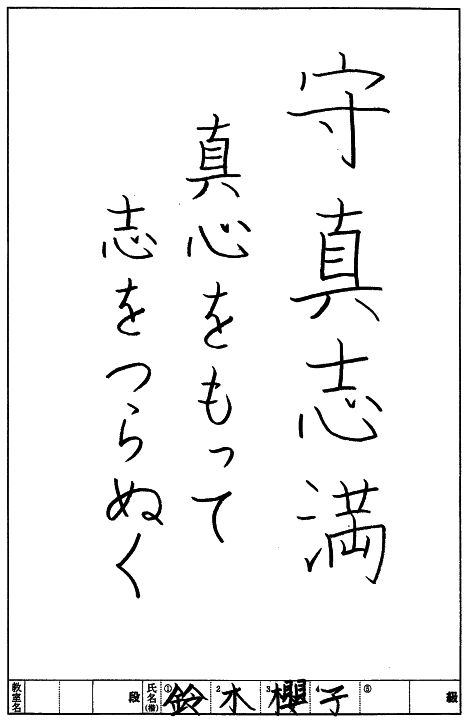 守真志満
真心をもって
志をつらぬく
教室名 段 氏名(楷) ① 鈴 2 木 3 櫻 4 子 ⑤ 級